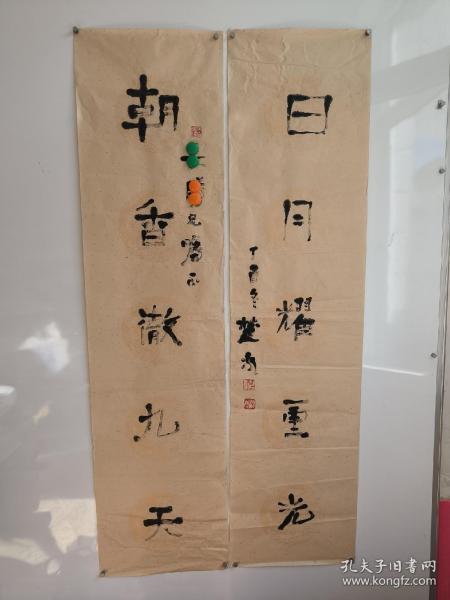 日月耀重光
丁酉冬楚
朝香澈九天
兄
孔夫子旧书网
www.kongfz.com